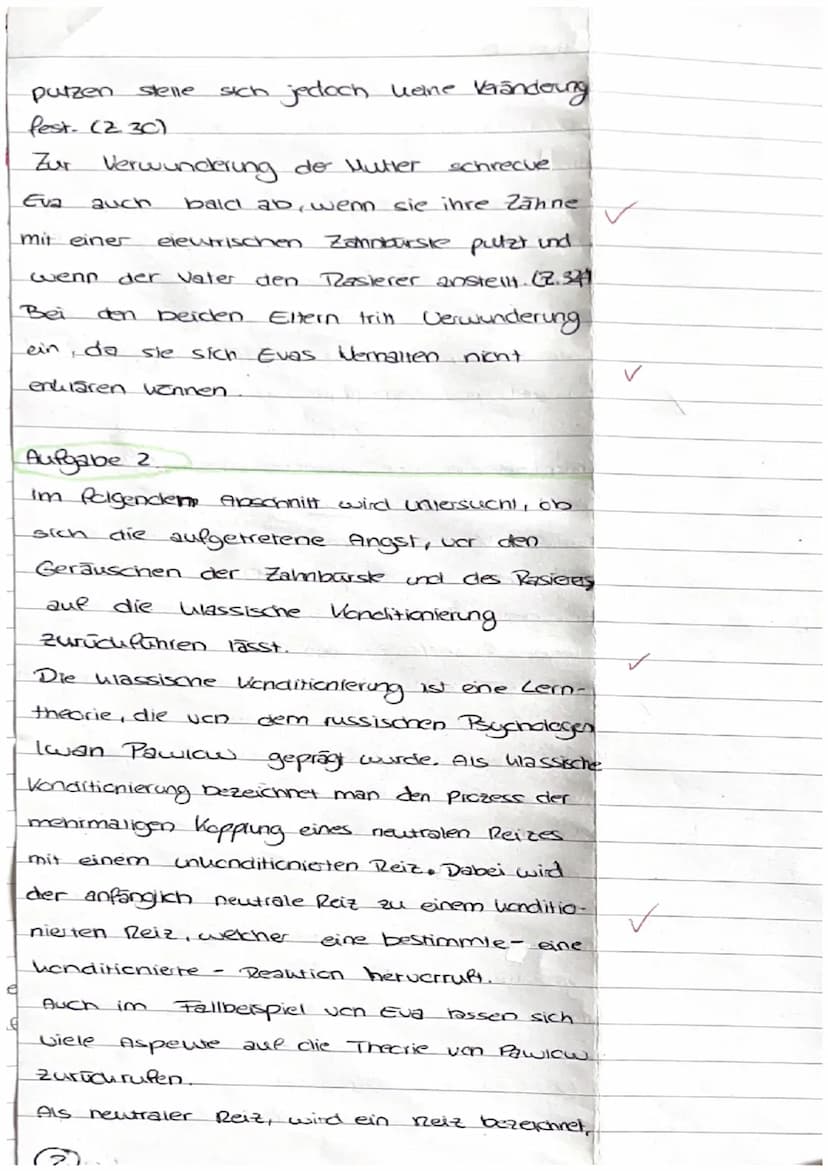 putzen stelle sich jedoch keine Veränderung
fest. (Z 30)
Zur Verwunderung der Mutter schrecke
Eva auch bald ab, wenn sie ihre Zähne
mit einer elektrischen Zahnbürste putzt und
wenn der Vater den Rasierer anstellt. (Z. 34)
Bei den beiden Eltern tritt Verwunderung
ein, da sie sich Evas Verhalten nicht
erklären können.
Aufgabe 2
Im folgenden Abschnitt wird untersucht, ob
sich die aufgetretene Angst, vor den
Geräuschen der Zahnbürste und des Rasierers
auf die klassische Konditionierung
zurückführen lässt.
Die klassische Konditionierung ist eine Lern-
theorie, die von dem russischen Psychologen
Iwan Pawlow geprägt wurde. Als klassische
Konditionierung bezeichnet man den Prozess der
mehrmaligen Kopplung eines neutralen Reizes
mit einem unkonditionierten Reiz. Dabei wird
der anfänglich neutrale Reiz zu einem konditio-
nierten Reiz, welcher eine bestimmte - eine
konditionierte - Reaktion hervorruft.
Auch im Fallbeispiel von Eva lassen sich
viele Aspekte auf die Theorie von Pawlow
zurückrufen.
Als neutraler Reiz, wird ein Reiz bezeichnet,
(2)